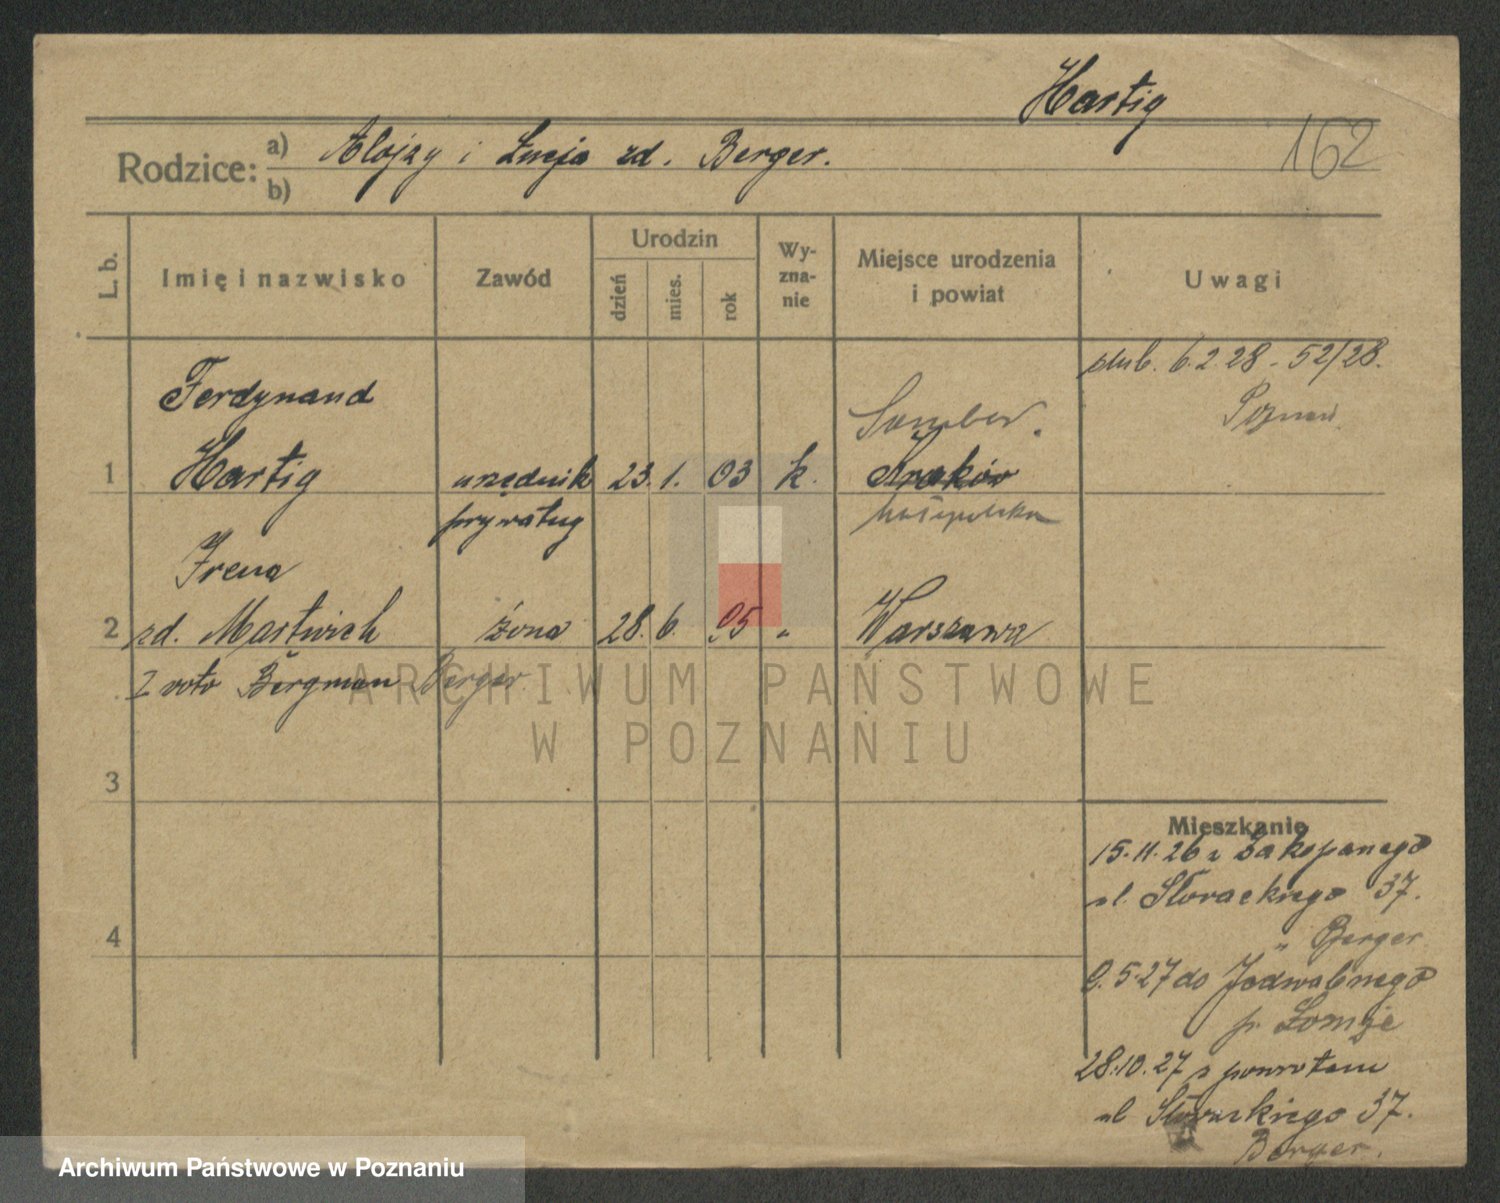 Hartig
162
Rodzice: a) Alojzy i Łucja zd. Berger.
b)
L. b.
Imię i nazwisko
Zawód
Urodzin
dzień
mies.
rok
Wy-
zna-
nie
Miejsce urodzenia
i powiat
Uwagi
ślub. 6.2.28 - 52/28.
Poznań
Ferdynand
Sambor.
1 Hartig urzędnik 23. 1. 03 k. Kraków
prywatny Małopolska
Irena
2 zd. Martwich żona 28. 6. 95 " Warszawa
I voto Bergman Berger
ARCHIWUM PAŃSTWOWE
W POZNANIU
3
4
Mieszkanie
15.11.26 z Zakopanego
ul. Słowackiego 37.
" Berger
9.5.27 do Jedwabnego
p. Łomże
28.10.27 z powrotem
ul Słowackiego 37.
Berger.
Archiwum Państwowe w Poznaniu